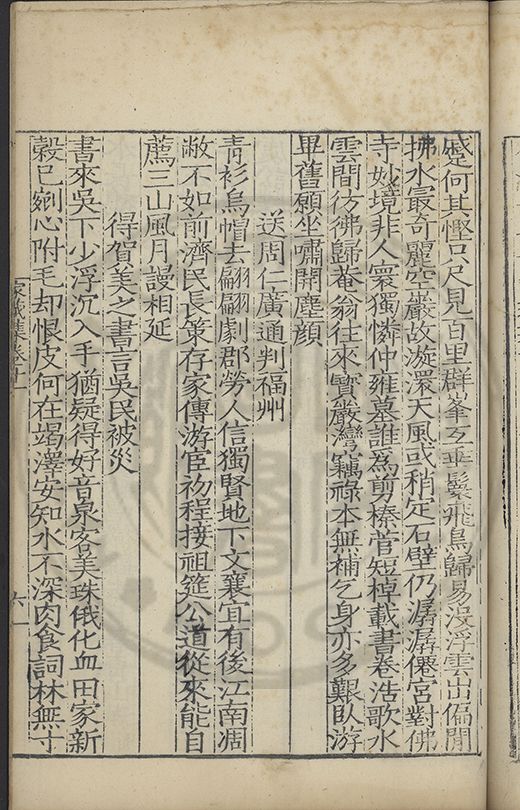 蹙何其慳只尺見百里群峯互垂鬟飛鳥歸易沒浮雲出偏閒
拂水最奇麗空巖故漩澴天風或稍定石壁仍潺潺僊宮對佛
寺妙境非人寰獨憐仲雍墓誰為剪榛菅短棹載書卷浩歌水
雲間彷彿歸菴翁往來寶巖灣竊祿本無補乞身亦多艱臥游
畢舊願坐嘯開塵顔
送周仁廣通判福州
青衫烏帽去翩翩劇郡勞人信獨賢地下文襄宜有後江南凋
敝不如前濟民長策存家傳游宦初程接祖筵公道從來能自
薦三山風月謾相延
得賀美之書言吳民被災
書來吳下少浮沉入手猶疑得好音泉客美珠俄化血田家新
穀已剜心附毛却恨皮何在竭澤安知水不深肉食詞林無寸
家藏集卷
六